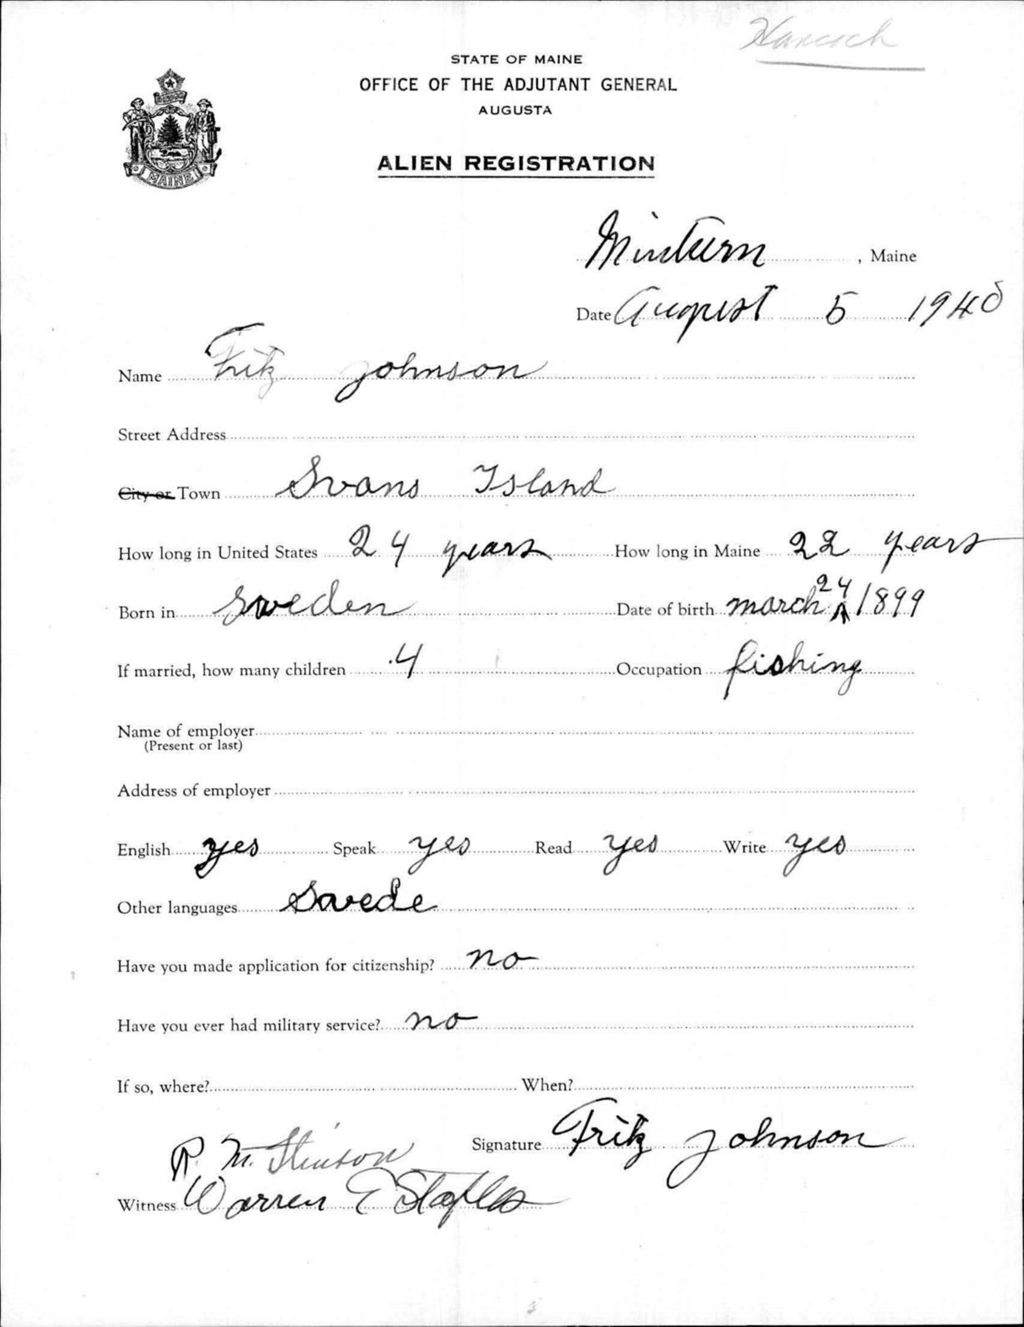 Hancock
STATE OF MAINE
OFFICE OF THE ADJUTANT GENERAL
AUGUSTA
MAINE
ALIEN REGISTRATION
Minturn, Maine
Date August 5 1940
Name Fritz Johnson
Street Address
City or Town Svans Island
How long in United States 24 years How long in Maine 22 years
Born in Sweden Date of birth march 24 1899
If married, how many children 4 Occupation fishing
Name of employer
(Present or last)
Address of employer
English yes Speak yes Read yes Write yes
Other languages Swede
Have you made application for citizenship? no
Have you ever had military service? no
If so, where? When?
Signature Fritz Johnson
R. M. Stinson
Witness Warren E Staples